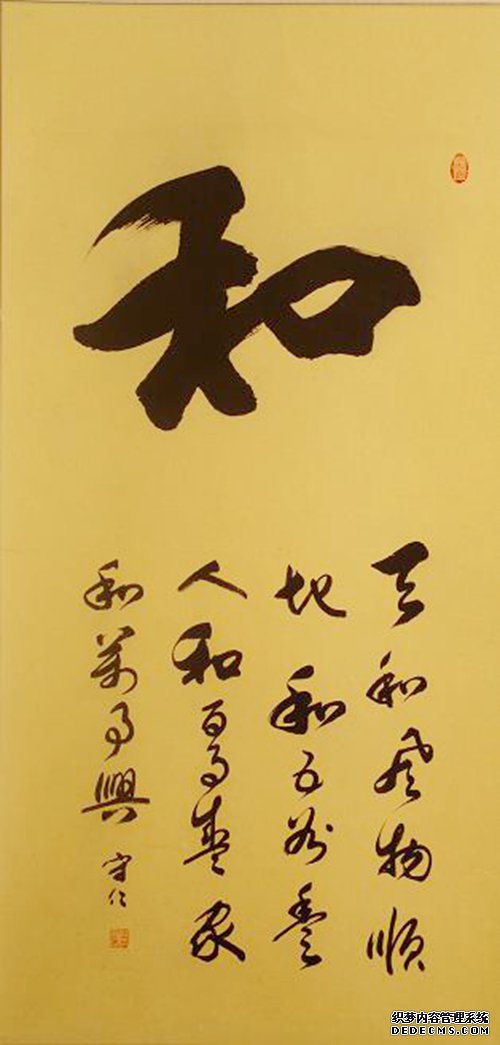 和
天和風物順
地和五谷豐
人和百事盛家
和萬事興
守仁
织梦内容管理系统
DEDECMS.COM